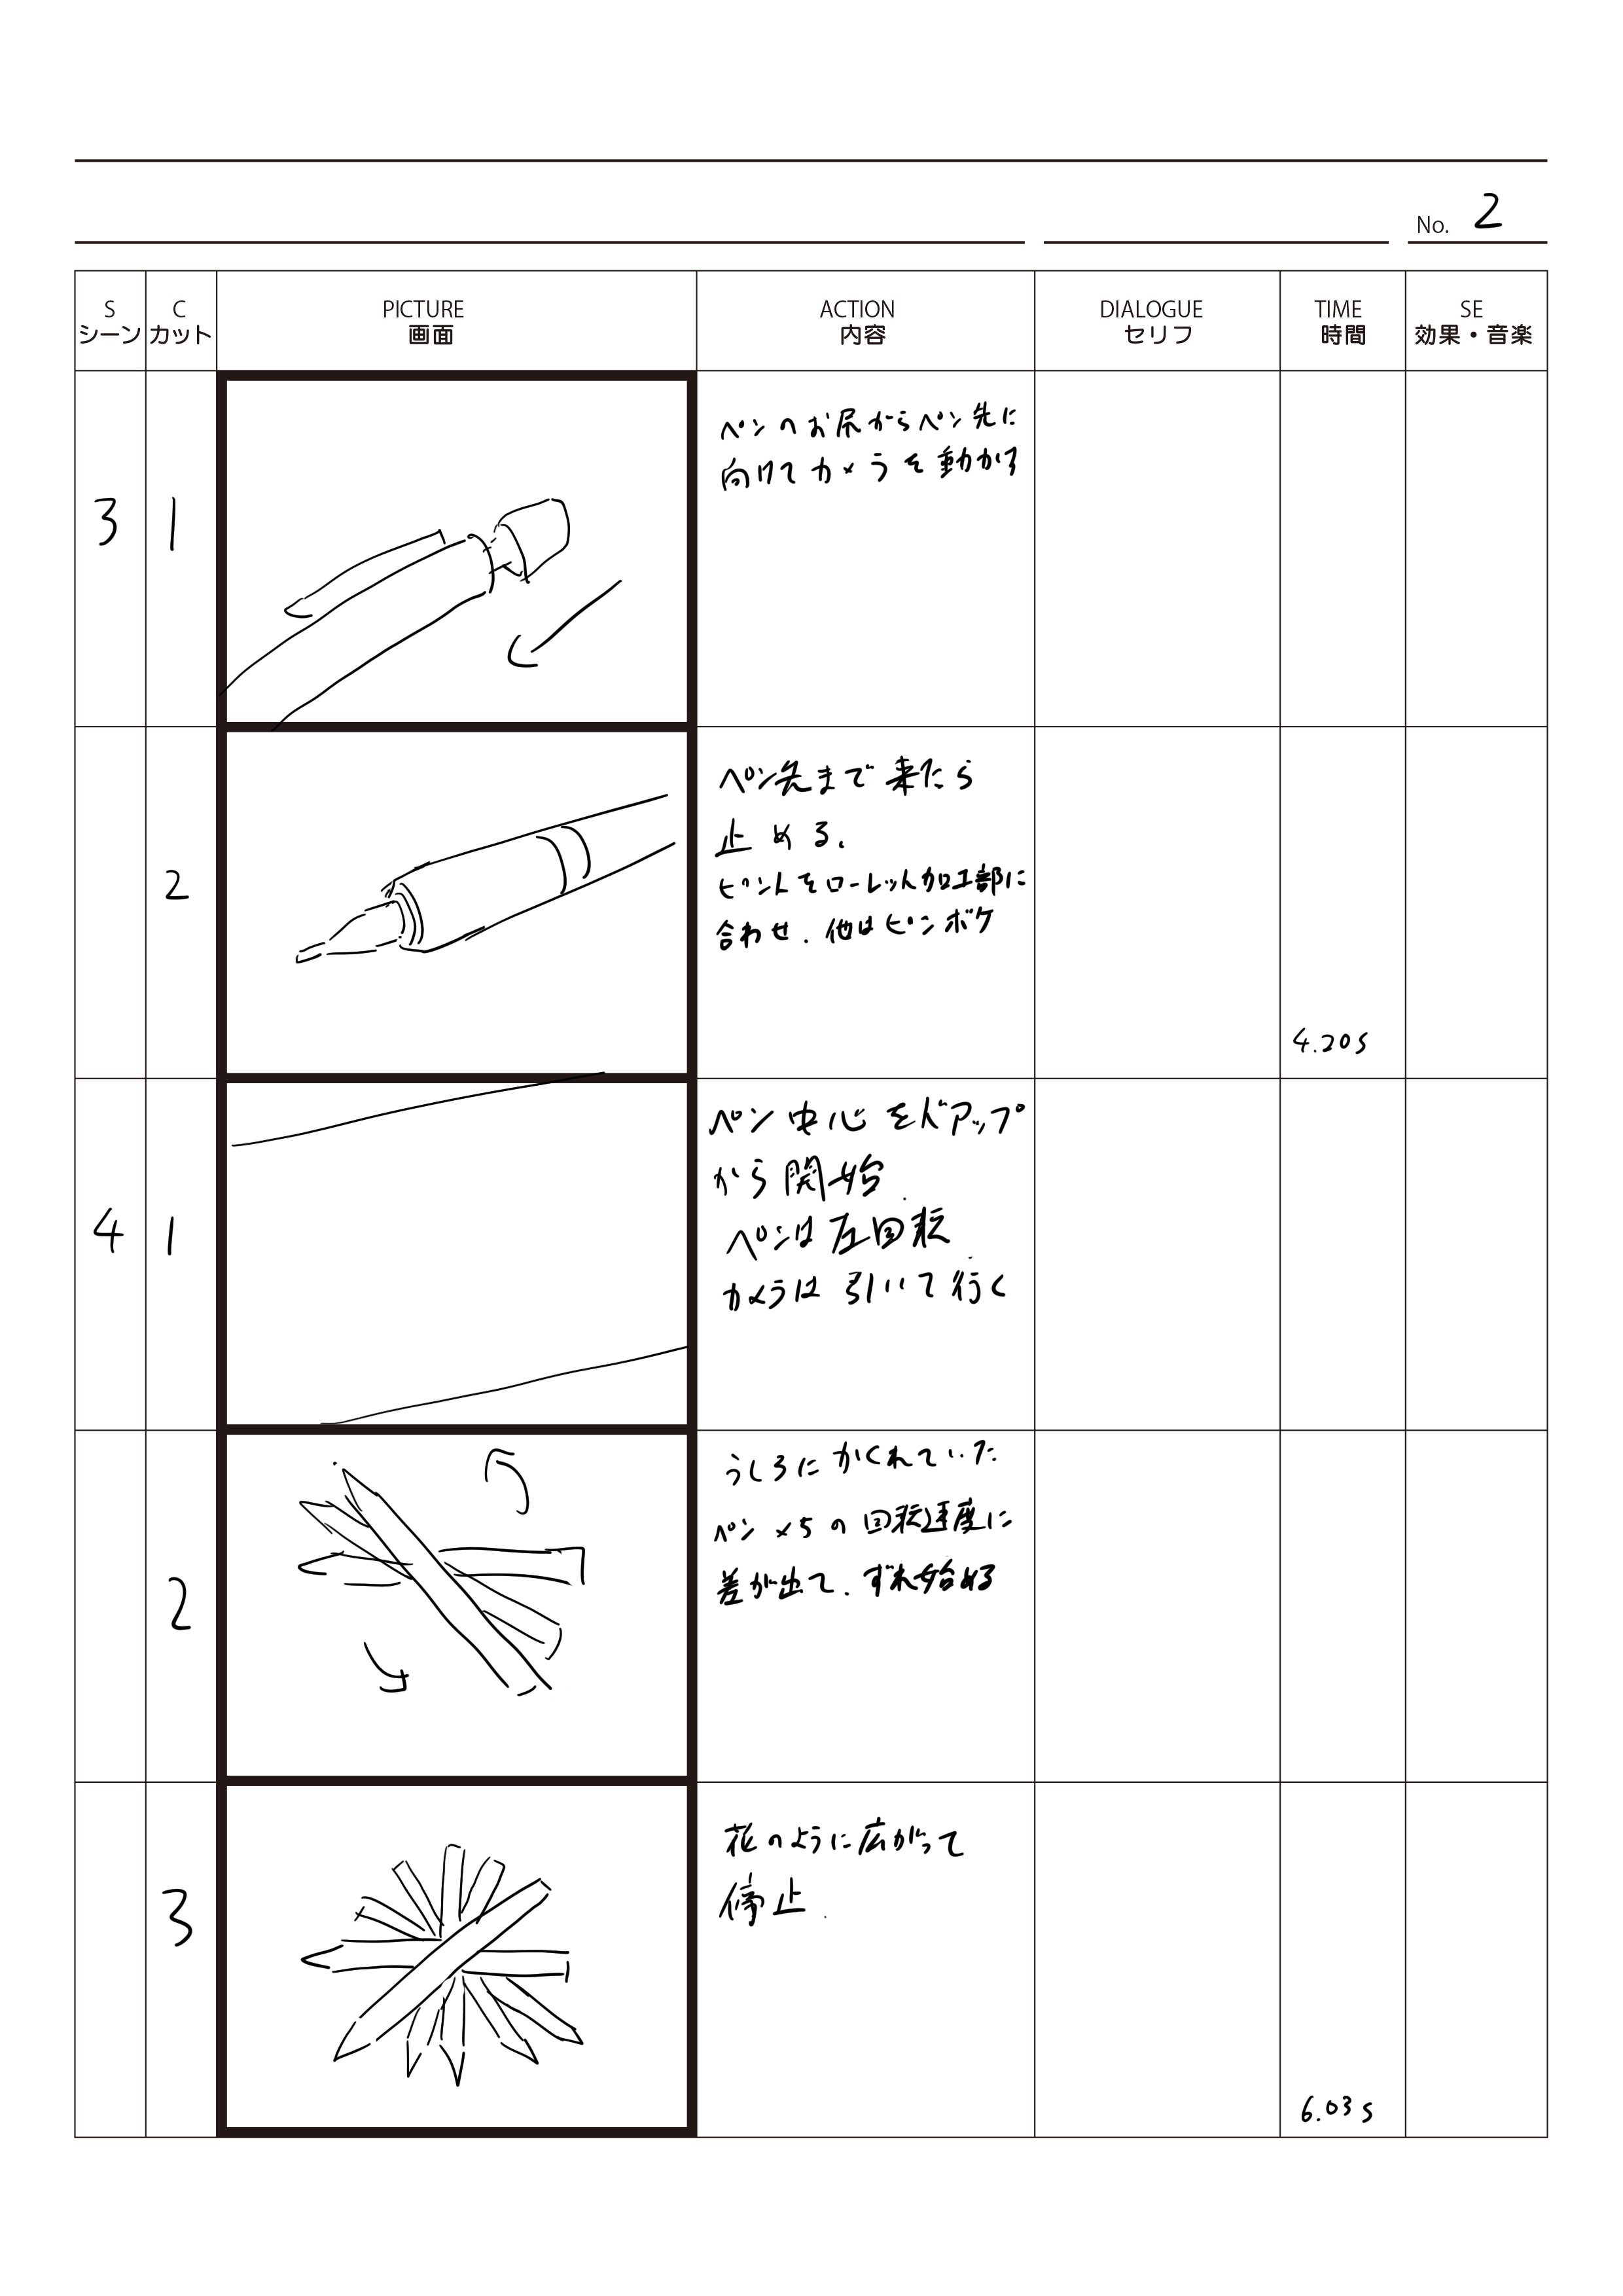 No. 2
S C PICTURE ACTION DIALOGUE TIME SE
シーン カット 画面 内容 セリフ 時間 効果・音楽
3 1
ペンのお尻からペン先に
向けてカメラを動かす
2
ペン先まで来たら
止める.
ピントをローレット加工部に
合わせ. 他はピンボケ
4.20s
4 1
ペン中心をドアップ
から開始.
ペンは左回転
カメラは引いて行く
2
うしろにかくれていた
ペンメちの回転速度に
差が出て. ずれ始める
3
花のように広がって
停止.
6.03s